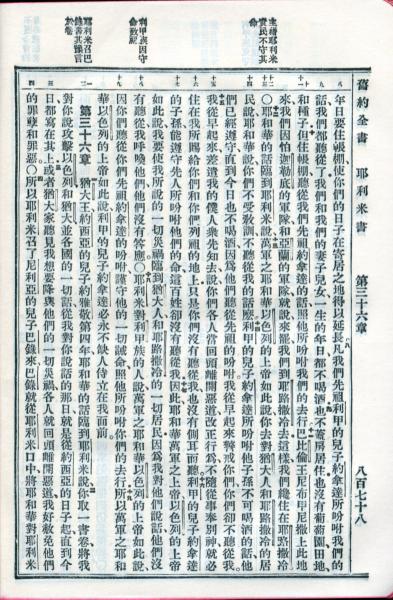 舊約全書 耶利米書 第三十六章 八百七十八
主藉耶利米
責民不守其
命
利甲族因守
命致福
耶利米召巴
錄書其豫言
於卷
年日要住帳棚使你們的日子在寄居之地得以延長凡我們先祖利甲的兒子約拿達所吩咐我們的
話我們都聽從了我們和我們的妻子兒女一生的年日都不喝酒也不蓋房居住也沒有葡萄園田地
和種子但住帳棚聽從我們先祖約拿達的話照他所吩咐我們的去行巴比倫王尼布甲尼撒上此地
來我們因怕迦勒底的軍隊和亞蘭的軍隊就說來罷我們到耶路撒冷去這樣我們纔住在耶路撒冷
〇耶和華的話臨到耶利米說萬軍之耶和華以色列的上帝如此說你去對猶大人和耶路撒冷的居
民說耶和華說你們不受教訓不聽從我的話麼利甲的兒子約拿達所吩咐他子孫不可喝酒的話他
們已經遵守直到今日也不喝酒因爲他們聽從先祖的吩咐我從早起來警戒你們你們卻不聽從我
我從早起來差遣我的僕人衆先知去說你們各人當回頭離開惡道改正行爲不隨從事奉別神就必
住在我所賜給你們和你們列祖的地上只是你們沒有聽從我也沒有側耳而聽利甲的兒子約拿達
的子孫能遵守先人所吩咐他們的命這百姓卻沒有聽從我因此耶和華萬軍之上帝以色列的上帝
如此說我要使我所說的一切災禍臨到猶大人和耶路撒冷的一切居民因爲我對他們說話他們沒
有聽從我呼喚他們他們沒有答應〇耶利米對利甲族的人說萬軍之耶和華以色列的上帝如此說
因你們聽從你們先祖約拿達的吩咐謹守他的一切誡命照他所吩咐你們的去行所以萬軍之耶和
華以色列的上帝如此說利甲的兒子約拿達必永不缺人侍立在我面前
第三十六章 猶大王約西亞的兒子約雅敬第四年耶和華的話臨到耶利米說你取一書卷將我
對你說攻擊以色列和猶大並各國的一切話從我對你說話的那日就是從約西亞的日子起直到今
日都寫在其上或者猶大家聽見我想要降與他們的一切災禍各人就回頭離開惡道我好赦免他們
的罪孽和罪惡〇所以耶利米召了尼利亞的兒子巴錄來巴錄就從耶利米口中將耶和華對耶利米